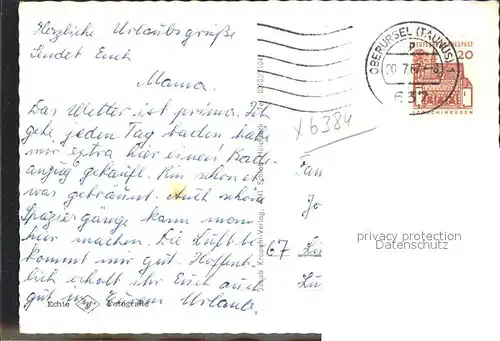 Herzliche Urlaubsgrüße
sendet Euch
Mama.
Das Wetter ist prima. Ich
gehe jeden Tag baden habe
mir extra hier einen Bade-
anzug gekauft. Bin schon etwas
was gebräunt. Auch schöne
Spaziergänge kann man
hier machen. Die Luft be-
kommt mir gut. Hoffent-
lich erholt ihr Euch auch
gut in Eurem Urlaub.
Echte Fotografie
X6384
OBERURSEL (TAUNUS)
637
DEUTSCHE BUNDESPOST
20
LORSCH/HESSEN
67
privacy protection
Datenschutz